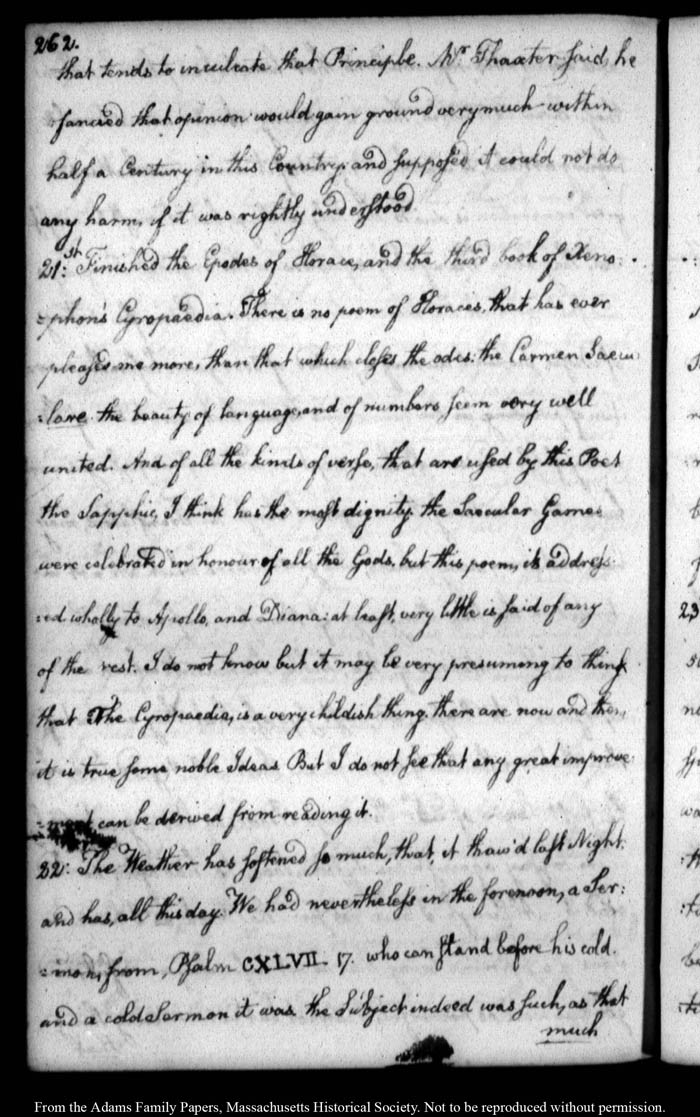 262.
that tends to inculcate that Principle. Mr. Thaxter said, he
fancied that opinion would gain ground very much within
half a Century in this Country; and supposed it could not do
any harm, if it was rightly understood.
21:st Finished the Epodes of Horace, and the third book of Xeno:
:phon's Cyropaedia. There is no poem of Horaces, that has ever
pleased me more, than that which closes the odes: the Carmen Saecu
:lare. the beauty of language, and of numbers seem very well
united. And of all the kinds of verse, that are used by this Poet
the Sapphic, I think has the most dignity. the Saecular Games
were celebrated in honour of all the Gods, but this poem, is address
:ed wholly to Apollo, and Diana: at least, very little is said of any
of the rest. I do not know but it may be very presuming to think
that The Cyropaedia, is a very childish thing. there are now and then,
it is true some noble Ideas But I do not see that any great improve
:ment can be derived from reading it.
22: The Weather has softened so much, that, it thaw'd last Night.
and has, all this day. We had nevertheless in the forenoon, a Ser:
:mon, from, Psalm CXLVII. 17. who can stand before his cold.
and a cold Sermon it was. the Subject indeed was such, as that
much
23
From the Adams Family Papers, Massachusetts Historical Society. Not to be reproduced without permission.